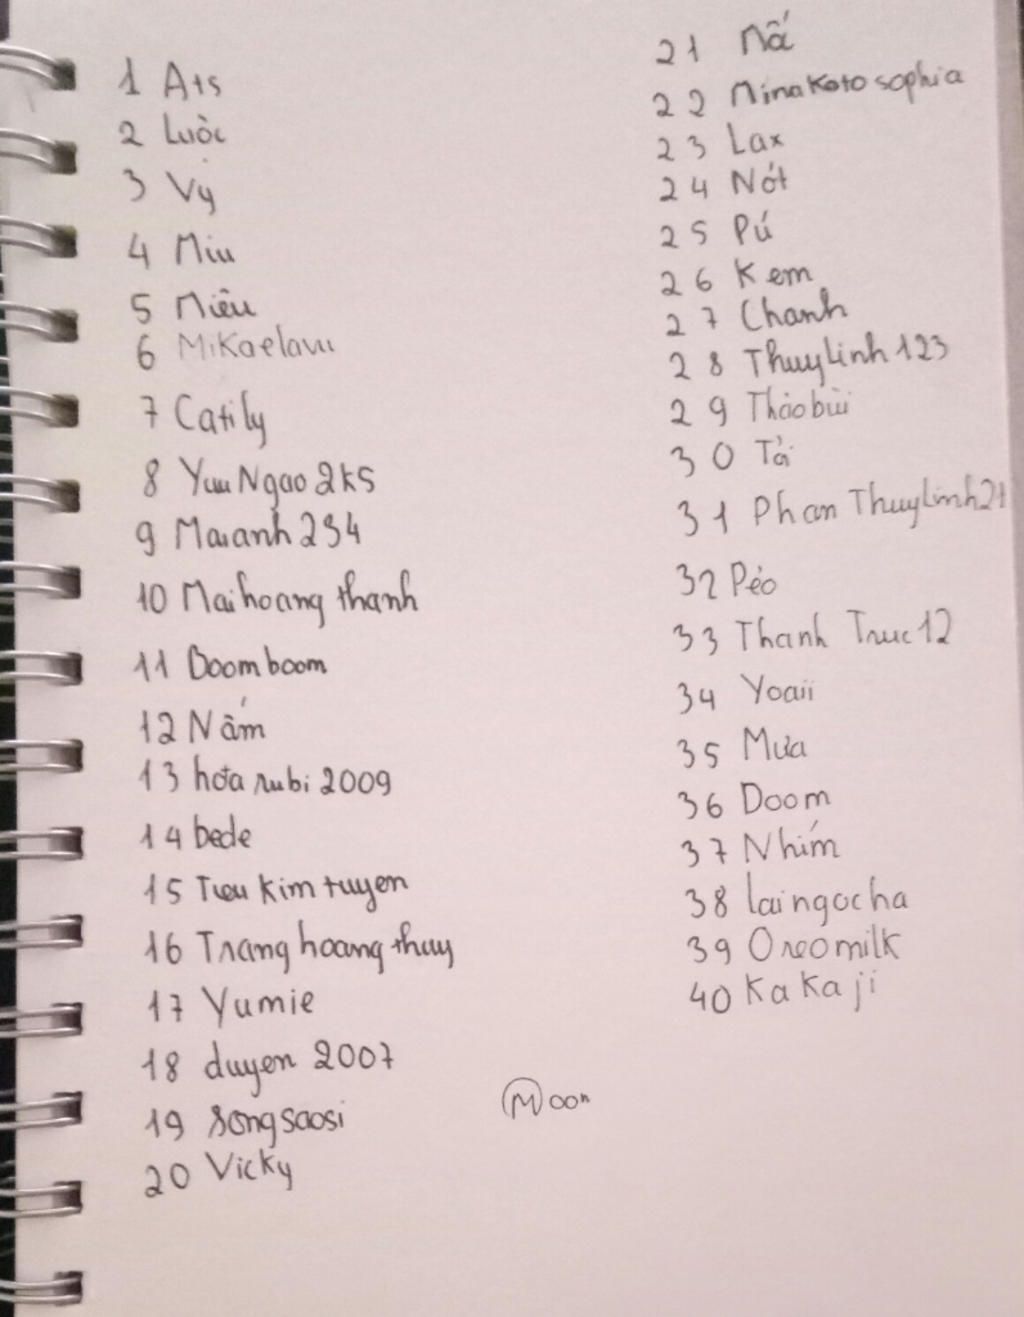 1 Ats
2 Luộc
3 Vy
4 Miu
5 Miêu
6 Mikaelavu
7 Catily
8 Yuu Ngao 2k5
9 Maianh234
10 Maihoang thanh
11 Boomboom
12 Nấm
13 hoa rubi 2009
14 bede
15 Tieu kim tuyen
16 Trang hoang thuy
17 Yumie
18 duyen 2007
19 Songsaosi
20 Vicky
21 Mã
22 Minakoto sophia
23 Lax
24 Nót
25 Pú
26 Kem
27 Chanh
28 Thuylinh123
29 Thảobùi
30 Tải
31 Phan Thuylinh21
32 Pẻo
33 Thanh Truc12
34 Yoaii
35 Mưa
36 Doom
37 Nhím
38 laingocha
39 Oreomilk
40 Kakaji
Moon